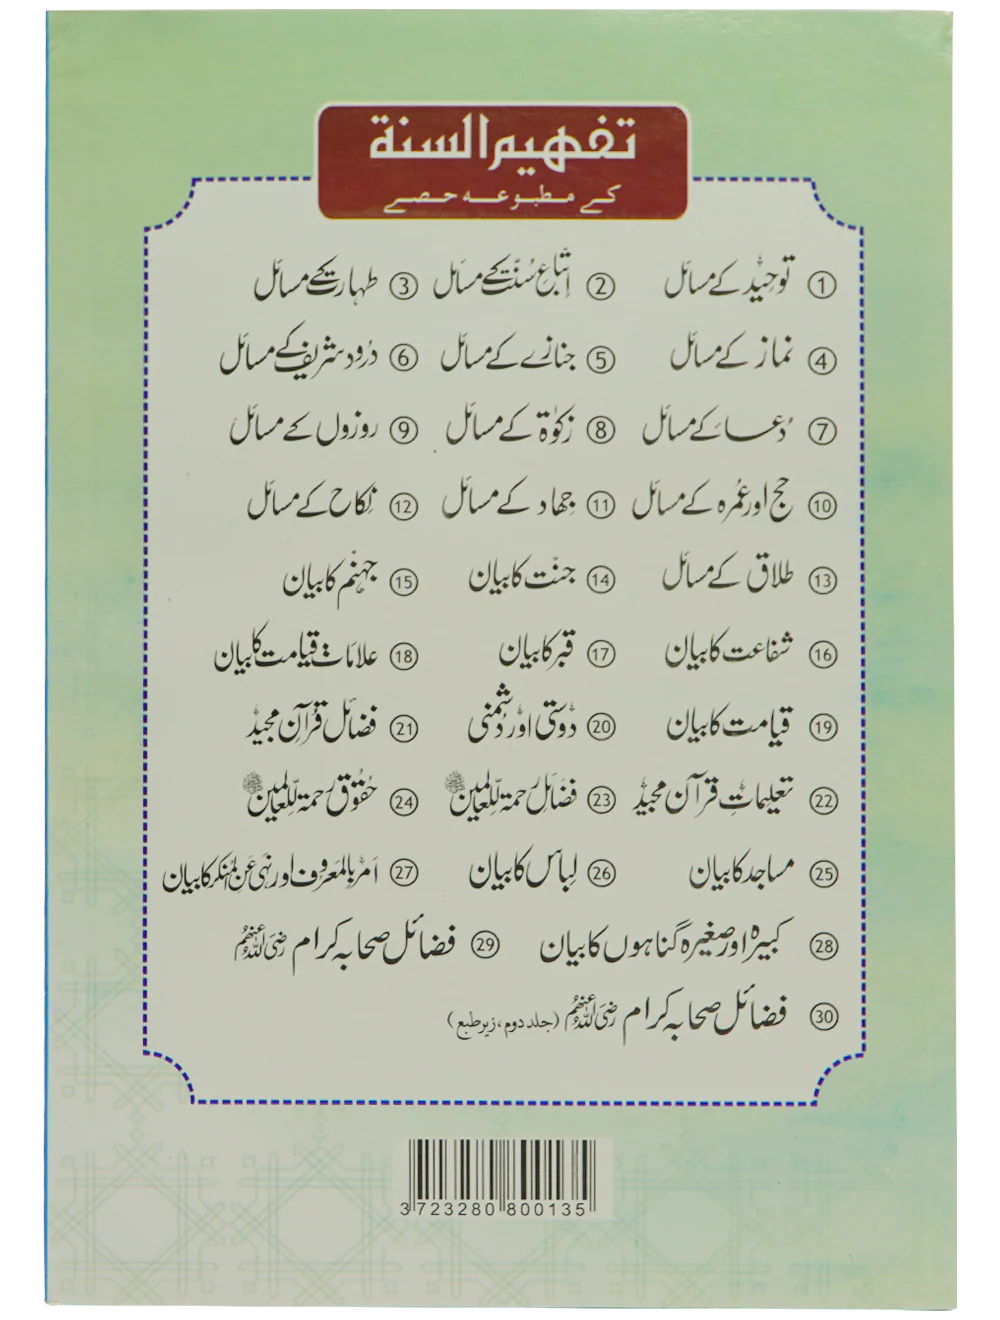 تفهیم السنة
کے مطبوعہ حصے
① توحید کے مسائل ② اتباعِ سُنّت کے مسائل ③ طہارت کے مسائل
④ نماز کے مسائل ⑤ جنازے کے مسائل ⑥ درود شریف کے مسائل
⑦ دُعا کے مسائل ⑧ زکوٰۃ کے مسائل ⑨ روزوں کے مسائل
⑩ حج اور عُمرہ کے مسائل ⑪ جہاد کے مسائل ⑫ نکاح کے مسائل
⑬ طلاق کے مسائل ⑭ جنّت کا بیان ⑮ جہنّم کا بیان
⑯ شفاعت کا بیان ⑰ قبر کا بیان ⑱ علاماتِ قیامت کا بیان
⑲ قیامت کا بیان ⑳ دوستی اور دُشمنی ㉑ فضائل قُرآنِ مجید
㉒ تعلیماتِ قرآن مجید ㉓ فضائل رحمۃ لّلعالمین ﷺ ㉔ حُقوق رحمۃ لّلعالمین ﷺ
㉕ مساجد کا بیان ㉖ لِباس کا بیان ㉗ امر بالمعروف اور نہی عن المنکر کا بیان
㉘ کبیرہ اور صغیرہ گناہوں کا بیان ㉙ فضائل صحابہ کرام رضی اللہ عنہم
㉚ فضائل صحابہ کرام رضی اللہ عنہم (جلد دوم، زیر طبع)
3 723280 800135